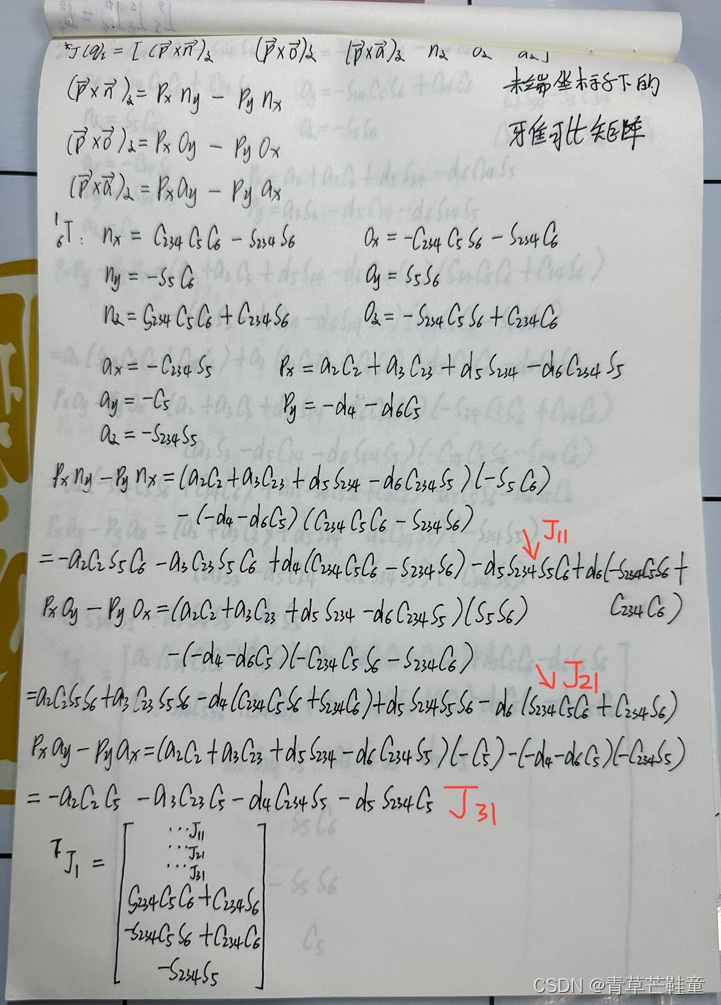 ᵀJ(q)₂ = [ (p⃗×n⃗)₂ (p⃗×o⃗)₂ (p⃗×a⃗)₂ n₂ o₂ a₂ ]
(p⃗×n⃗)₂ = Px ny − Py nx 末端坐标系下的
(p⃗×o⃗)₂ = Px Oy − Py Ox 雅可比矩阵
(p⃗×a⃗)₂ = Px ay − Py ax
¹₆T: nx = C234 C5 C6 − S234 S6 Ox = −C234 C5 S6 − S234 C6
ny = −S5 C6 Oy = S5 S6
n₂ = S234 C5 C6 + C234 S6 O₂ = −S234 C5 S6 + C234 C6
ax = −C234 S5 Px = a2 C2 + a3 C23 + d5 S234 − d6 C234 S5
ay = −C5 Py = −d4 − d6 C5
a₂ = −S234 S5
Px ny − Py nx = (a2 C2 + a3 C23 + d5 S234 − d6 C234 S5)(−S5 C6)
−(−d4 − d6 C5)(C234 C5 C6 − S234 S6) J11
= −a2 C2 S5 C6 − a3 C23 S5 C6 + d4(C234 C5 C6 − S234 S6) − d5 S234 S5 C6 + d6(−S234 C5 S6 +
C234 C6)
Px Oy − Py Ox = (a2 C2 + a3 C23 + d5 S234 − d6 C234 S5)(S5 S6)
−(−d4 − d6 C5)(−C234 C5 S6 − S234 C6) J21
= a2 C2 S5 S6 + a3 C23 S5 S6 − d4(C234 C5 S6 + S234 C6) + d5 S234 S5 S6 − d6(S234 C5 C6 + C234 S6)
Px ay − Py ax = (a2 C2 + a3 C23 + d5 S234 − d6 C234 S5)(−C5) − (−d4 − d6 C5)(−C234 S5)
= −a2 C2 C5 − a3 C23 C5 − d4 C234 S5 − d5 S234 C5 J31
ᵀJ₁ =
…J11
…J21
…J31
S234 C5 C6 + C234 S6
−S234 C5 S6 + C234 C6
−S234 S5
CSDN @青草芒鞋童